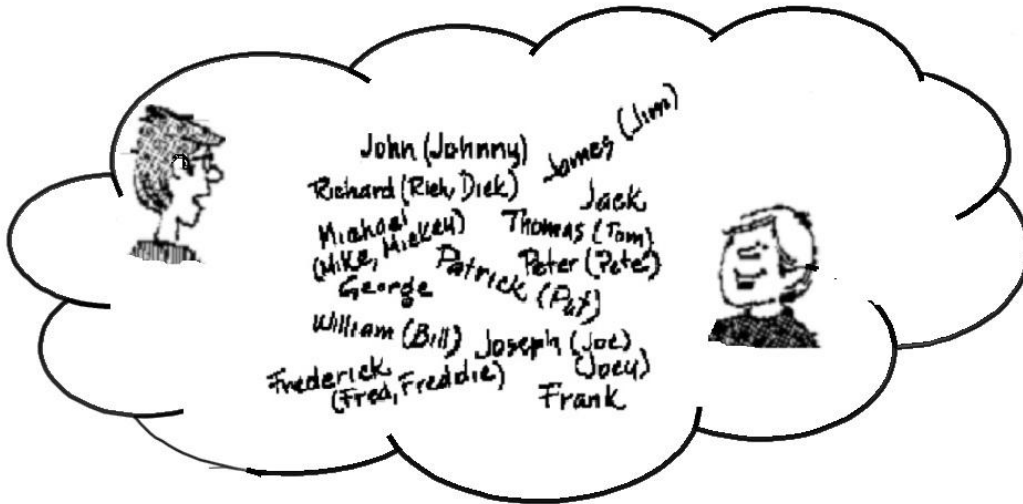 John (Johnny)
James (Jim)
Richard (Rich, Dick)
Jack
Michael
(Mike, Mickey)
Thomas (Tom)
Peter (Pete)
Patrick (Pat)
George
William (Bill)
Joseph (Joe)
(Joey)
Frederick
(Fred, Freddie)
Frank